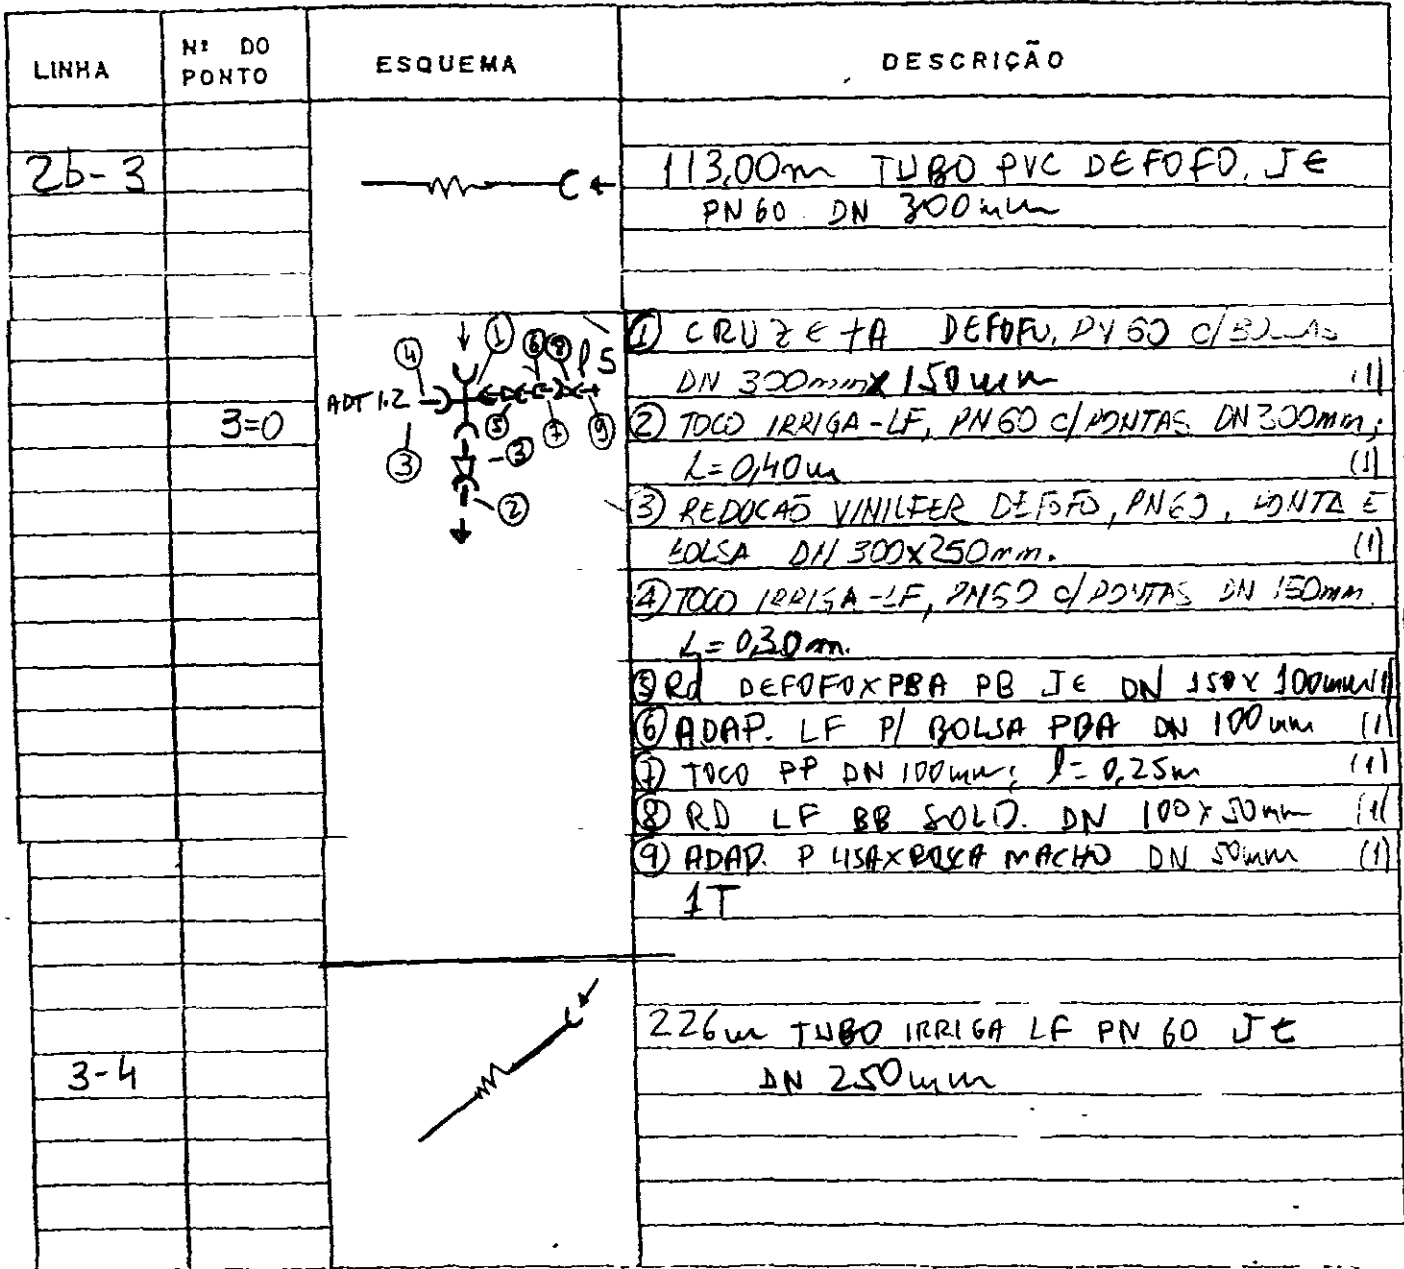 LINHA
Nº DO PONTO
ESQUEMA
DESCRIÇÃO
2b-3
113,00m TUBO PVC DEFOFO, JE
PN 60 DN 300mm
3=0
ADT 1.2
1
4
6
8
PS
5
7
9
3
3
2
① CRUZETA DEFOFO, PN 60 c/
DN 300mm X 150mm (1)
② TOCO IRRIGA-LF, PN 60 c/PONTAS DN 300mm;
L=0,40m (1)
③ REDUCAÕ VINILFER DEFOFO, PN60, PONTA E
BOLSA DN 300x250mm. (1)
④ TOCO IRRIGA-LF, PN60 c/PONTAS DN 150mm.
L=0,30m.
⑤ Rd DEFOFOXPBA PB JE DN 150X100mm (1)
⑥ ADAP. LF P/ BOLSA PBA DN 100mm (1)
⑦ TOCO PP DN 100mm; l=0,25m (1)
⑧ RD LF BB SOLD. DN 100X50mm (1)
⑨ ADAP. P LISAXROSCA MACHO DN 50mm (1)
1T
3-4
226m TUBO IRRIGA LF PN 60 JE
DN 250mm